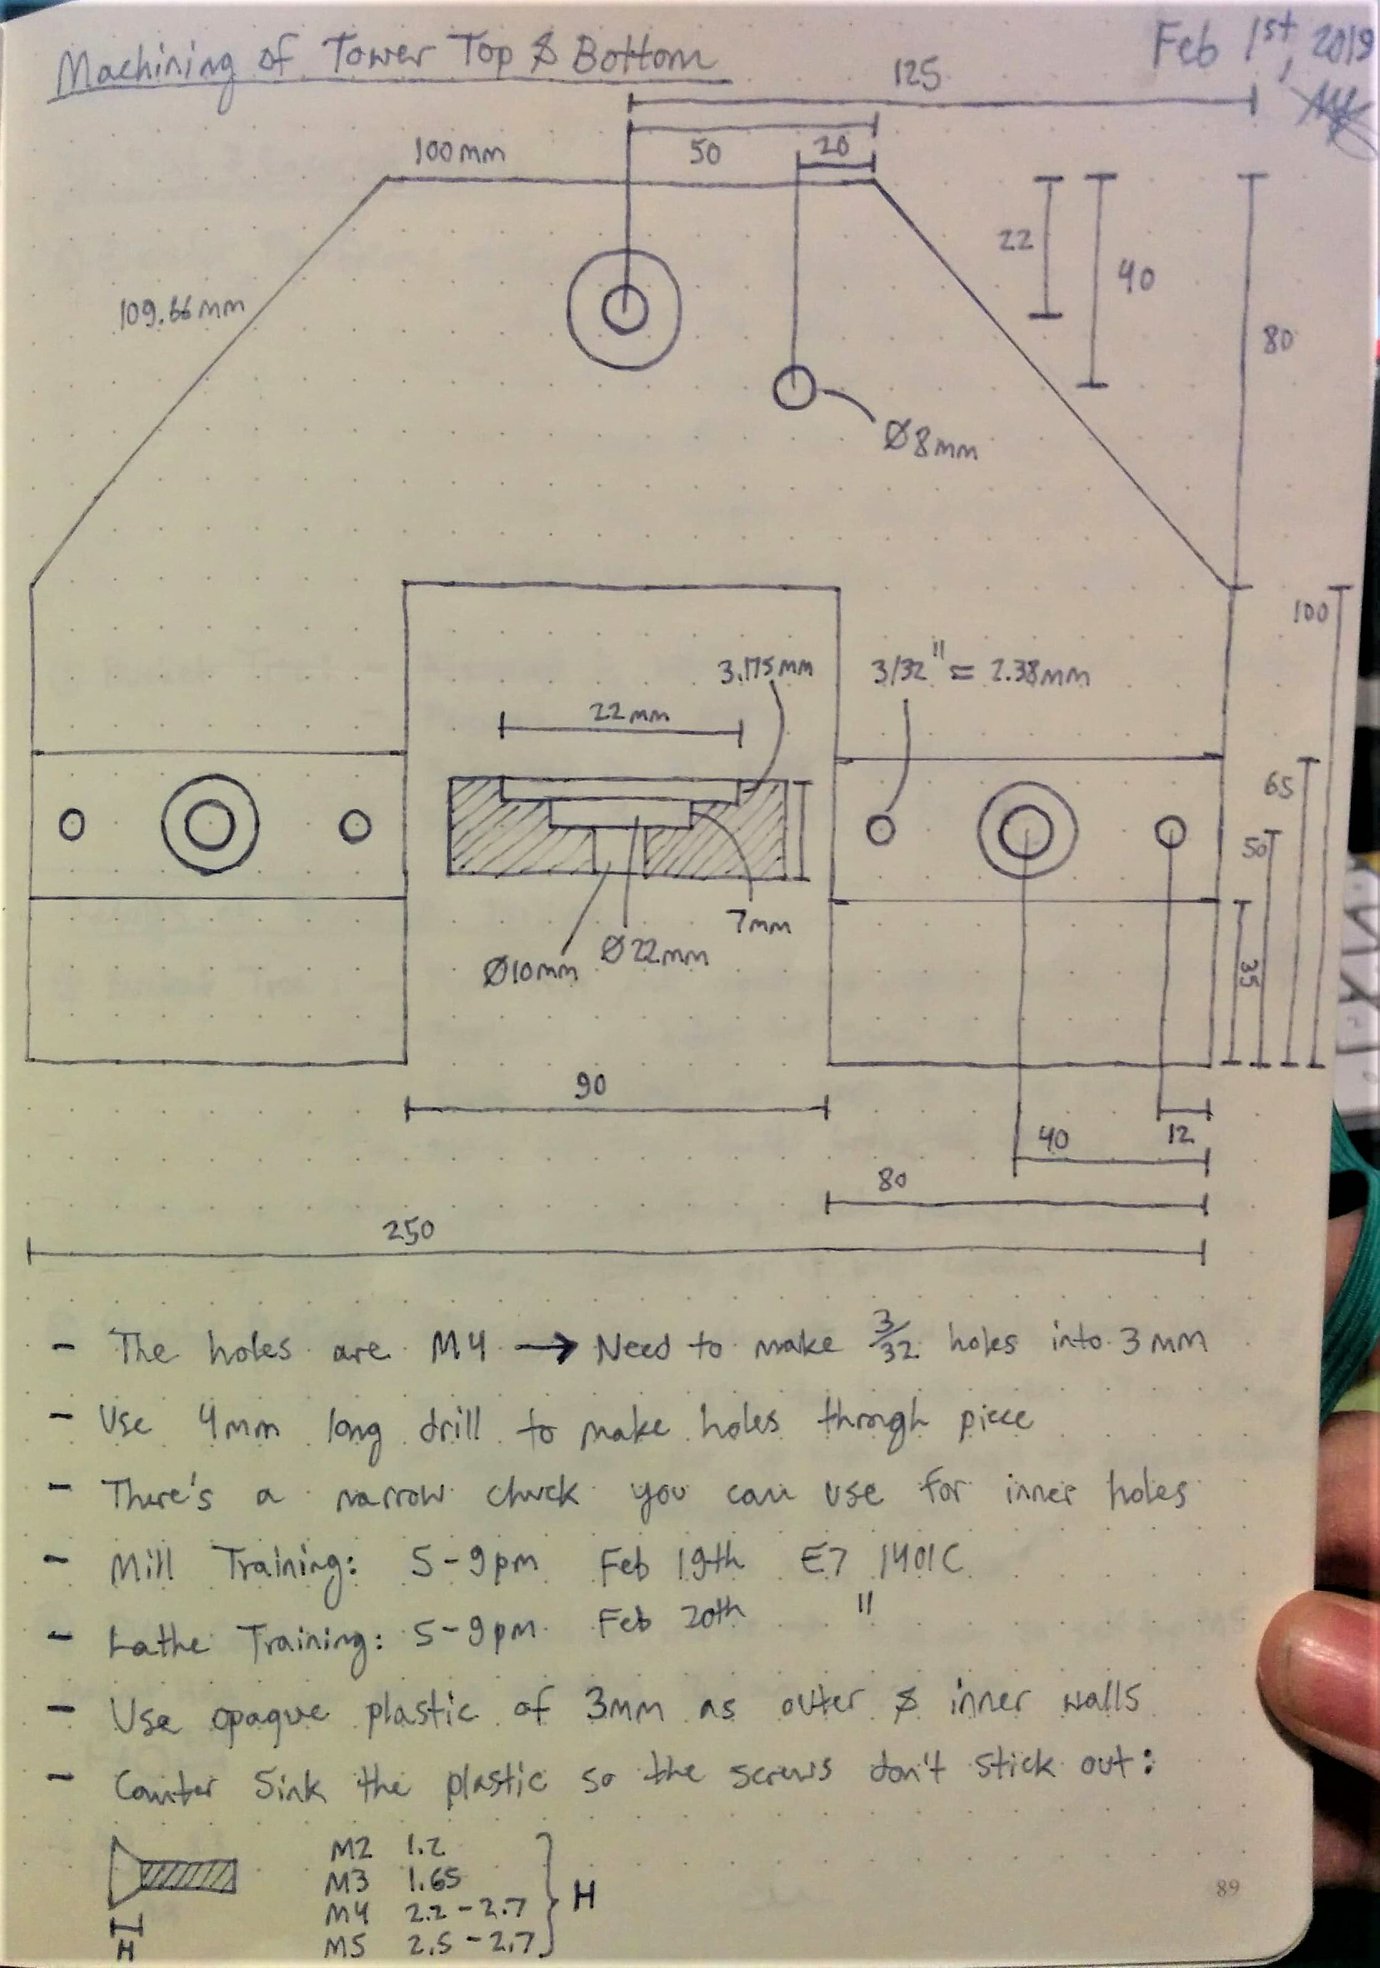 Machining of Tower Top & Bottom
Feb 1st, 2019
125
100mm
50
20
22
40
109.66mm
80
Ø8mm
100
3.175mm
3/32" = 2.38mm
22mm
65
50
7mm
Ø22mm
Ø10mm
35
90
40
12
80
250
- The holes are M4 → Need to make 3/32 holes into 3mm
- Use 4mm long drill to make holes through piece
- There's a narrow chuck you can use for inner holes
- Mill Training: 5-9pm Feb 19th E7 1401C
- Lathe Training: 5-9pm Feb 20th "
- Use opaque plastic of 3mm as outer & inner walls
- Counter Sink the plastic so the screws don't stick out:
M2 1.2
M3 1.65
M4 2.2-2.7
M5 2.5-2.7
H
H
89